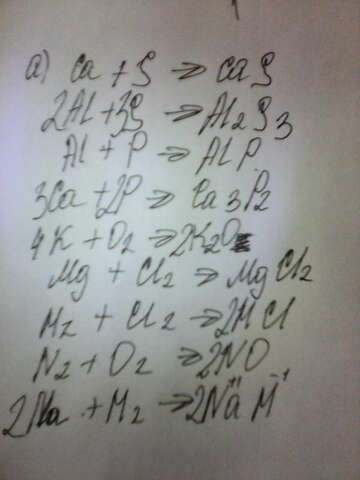 а) Ca + S → CaS
2Al + 3S → Al2S3
Al + P → AlP
3Ca + 2P → Ca3P2
4K + O2 → 2K2O
Mg + Cl2 → MgCl2
H2 + Cl2 → 2HCl
N2 + O2 → 2NO
2Na + H2 → 2Na⁺H⁻¹